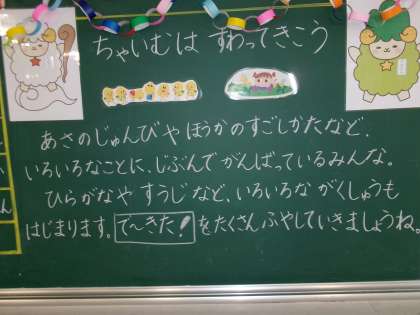 ちゃいむは すわってきこう
あさのじゅんびや ほうかのすごしかたなど、
いろいろなことに、じぶんで がんばっているみんな。
ひらがなや すうじ など、いろいろな がくしゅうも
はじまります。で〜きた！をたくさん ふやしていきましょうね。